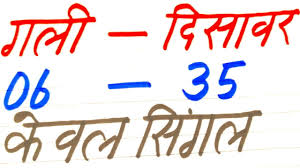 गली — दिसावर
06 — 35
केवल सिंगल